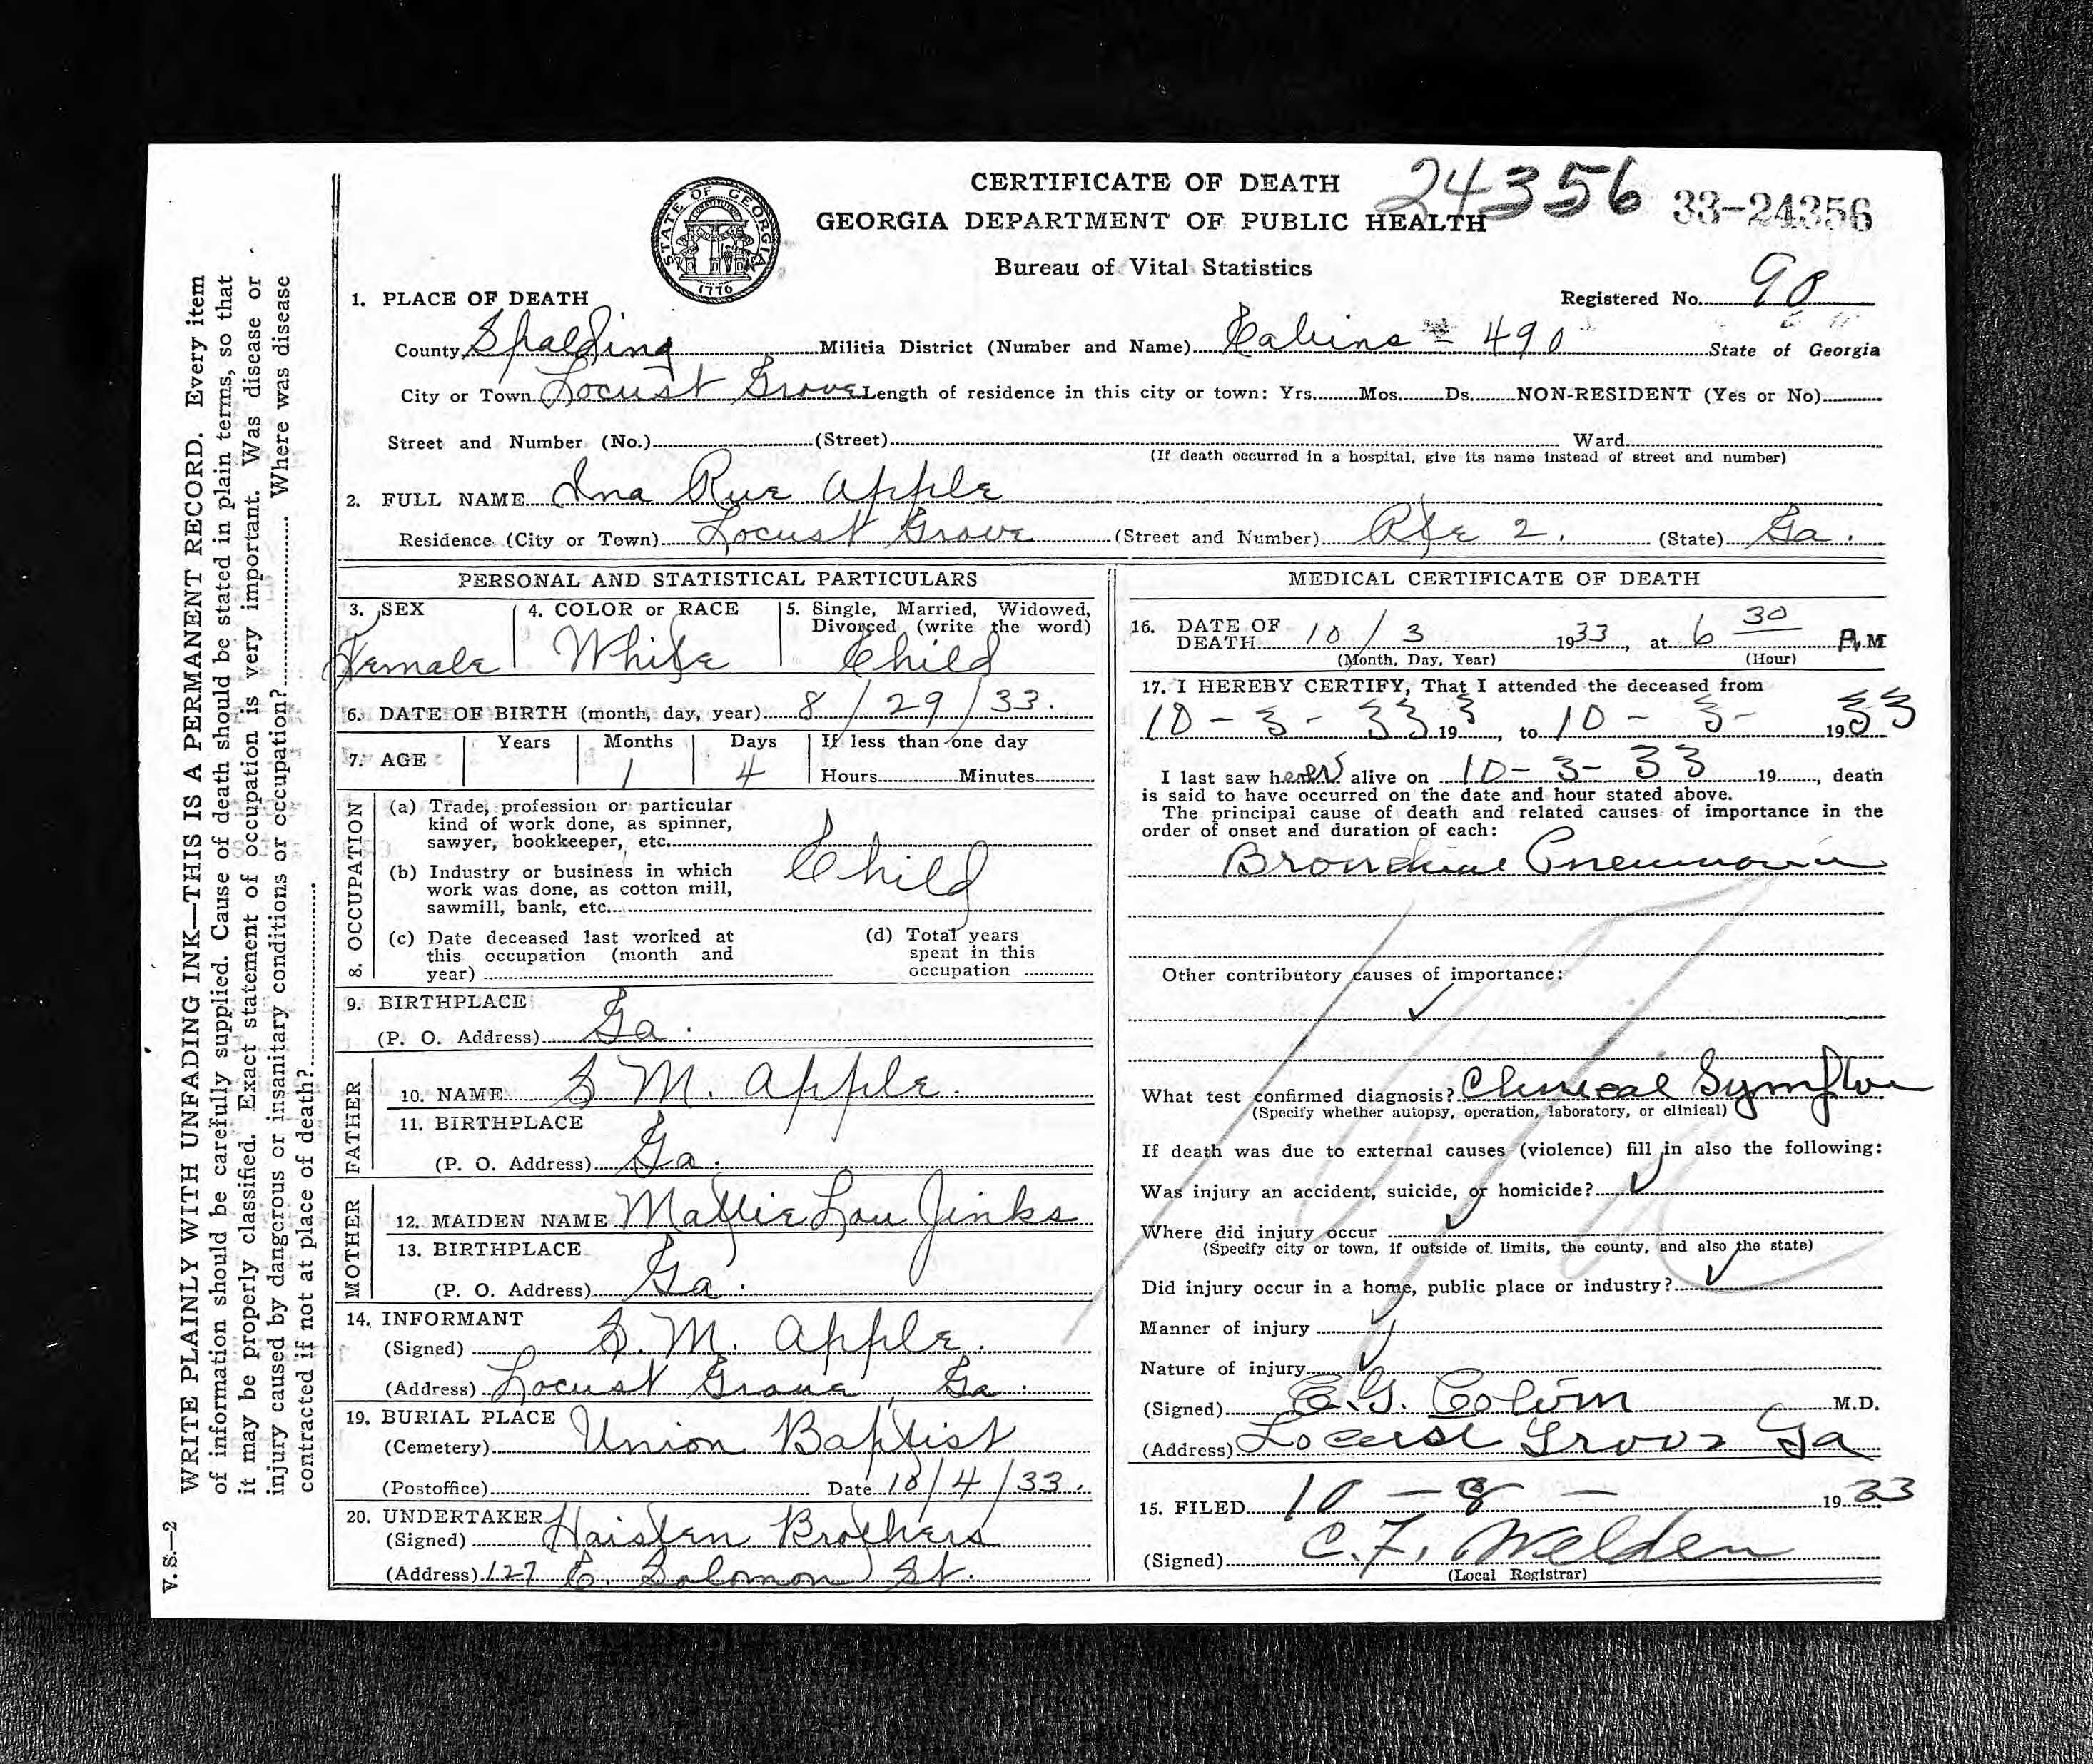 CERTIFICATE OF DEATH 24356 33-24356
GEORGIA DEPARTMENT OF PUBLIC HEALTH
Bureau of Vital Statistics
STATE OF GEORGIA CONSTITUTION 1776
Registered No. 90
1. PLACE OF DEATH
County Spalding Militia District (Number and Name) Cabins - 490 State of Georgia
City or Town Locust Grove Length of residence in this city or town: Yrs. Mos. Ds. NON-RESIDENT (Yes or No)
Street and Number (No.) (Street) Ward
(If death occurred in a hospital, give its name instead of street and number)
2. FULL NAME Ina Rue Apple
Residence (City or Town) Locust Grove (Street and Number) Rte 2. (State) Ga.
PERSONAL AND STATISTICAL PARTICULARS
3. SEX Female
4. COLOR or RACE White
5. Single, Married, Widowed, Divorced (write the word) Child
6. DATE OF BIRTH (month, day, year) 8/29/33.
7. AGE Years Months 1 Days 4 If less than one day
Hours Minutes
8. OCCUPATION
(a) Trade, profession or particular
kind of work done, as spinner,
sawyer, bookkeeper, etc.
(b) Industry or business in which
work was done, as cotton mill,
sawmill, bank, etc.
Child
(c) Date deceased last worked at
this occupation (month and
year)
(d) Total years
spent in this
occupation
9. BIRTHPLACE
(P. O. Address) Ga.
FATHER
10. NAME S M. Apple.
11. BIRTHPLACE
(P. O. Address) Ga.
MOTHER
12. MAIDEN NAME Mattie Lou Jinks
13. BIRTHPLACE
(P. O. Address) Ga.
14. INFORMANT
(Signed) S. M. Apple.
(Address) Locust Grove, Ga.
19. BURIAL PLACE
(Cemetery) Union Baptist
(Postoffice) Date 10/4/33.
20. UNDERTAKER
(Signed) Haisten Brothers
(Address) 127 E. Solomon St.
MEDICAL CERTIFICATE OF DEATH
16. DATE OF
DEATH 10/3 1933, at 6 30 A.M
(Month, Day, Year) (Hour)
17. I HEREBY CERTIFY, That I attended the deceased from
10-3-33 19 3, to 10-3- 1933
I last saw her alive on 10-3-33 19, death
is said to have occurred on the date and hour stated above.
The principal cause of death and related causes of importance in the
order of onset and duration of each:
Bronchial Pneumonia
Other contributory causes of importance:
What test confirmed diagnosis? Clinical
(Specify whether autopsy, operation, laboratory, or clinical)
If death was due to external causes (violence) fill in also the following:
Was injury an accident, suicide, or homicide?
Where did injury occur
(Specify city or town, if outside of limits, the county, and also the state)
Did injury occur in a home, public place or industry?
Manner of injury
Nature of injury
(Signed) M.D.
(Address) Locust Grove Ga
15. FILED 10-8- 1933
(Signed) C. F. Welden
(Local Registrar)
WRITE PLAINLY WITH UNFADING INK—THIS IS A PERMANENT RECORD. Every item
of information should be carefully supplied. Cause of death should be stated in plain terms, so that
it may be properly classified. Exact statement of occupation is very important. Was disease or
injury caused by dangerous or insanitary conditions or occupation? Where was disease
contracted if not at place of death?
V. S.—2